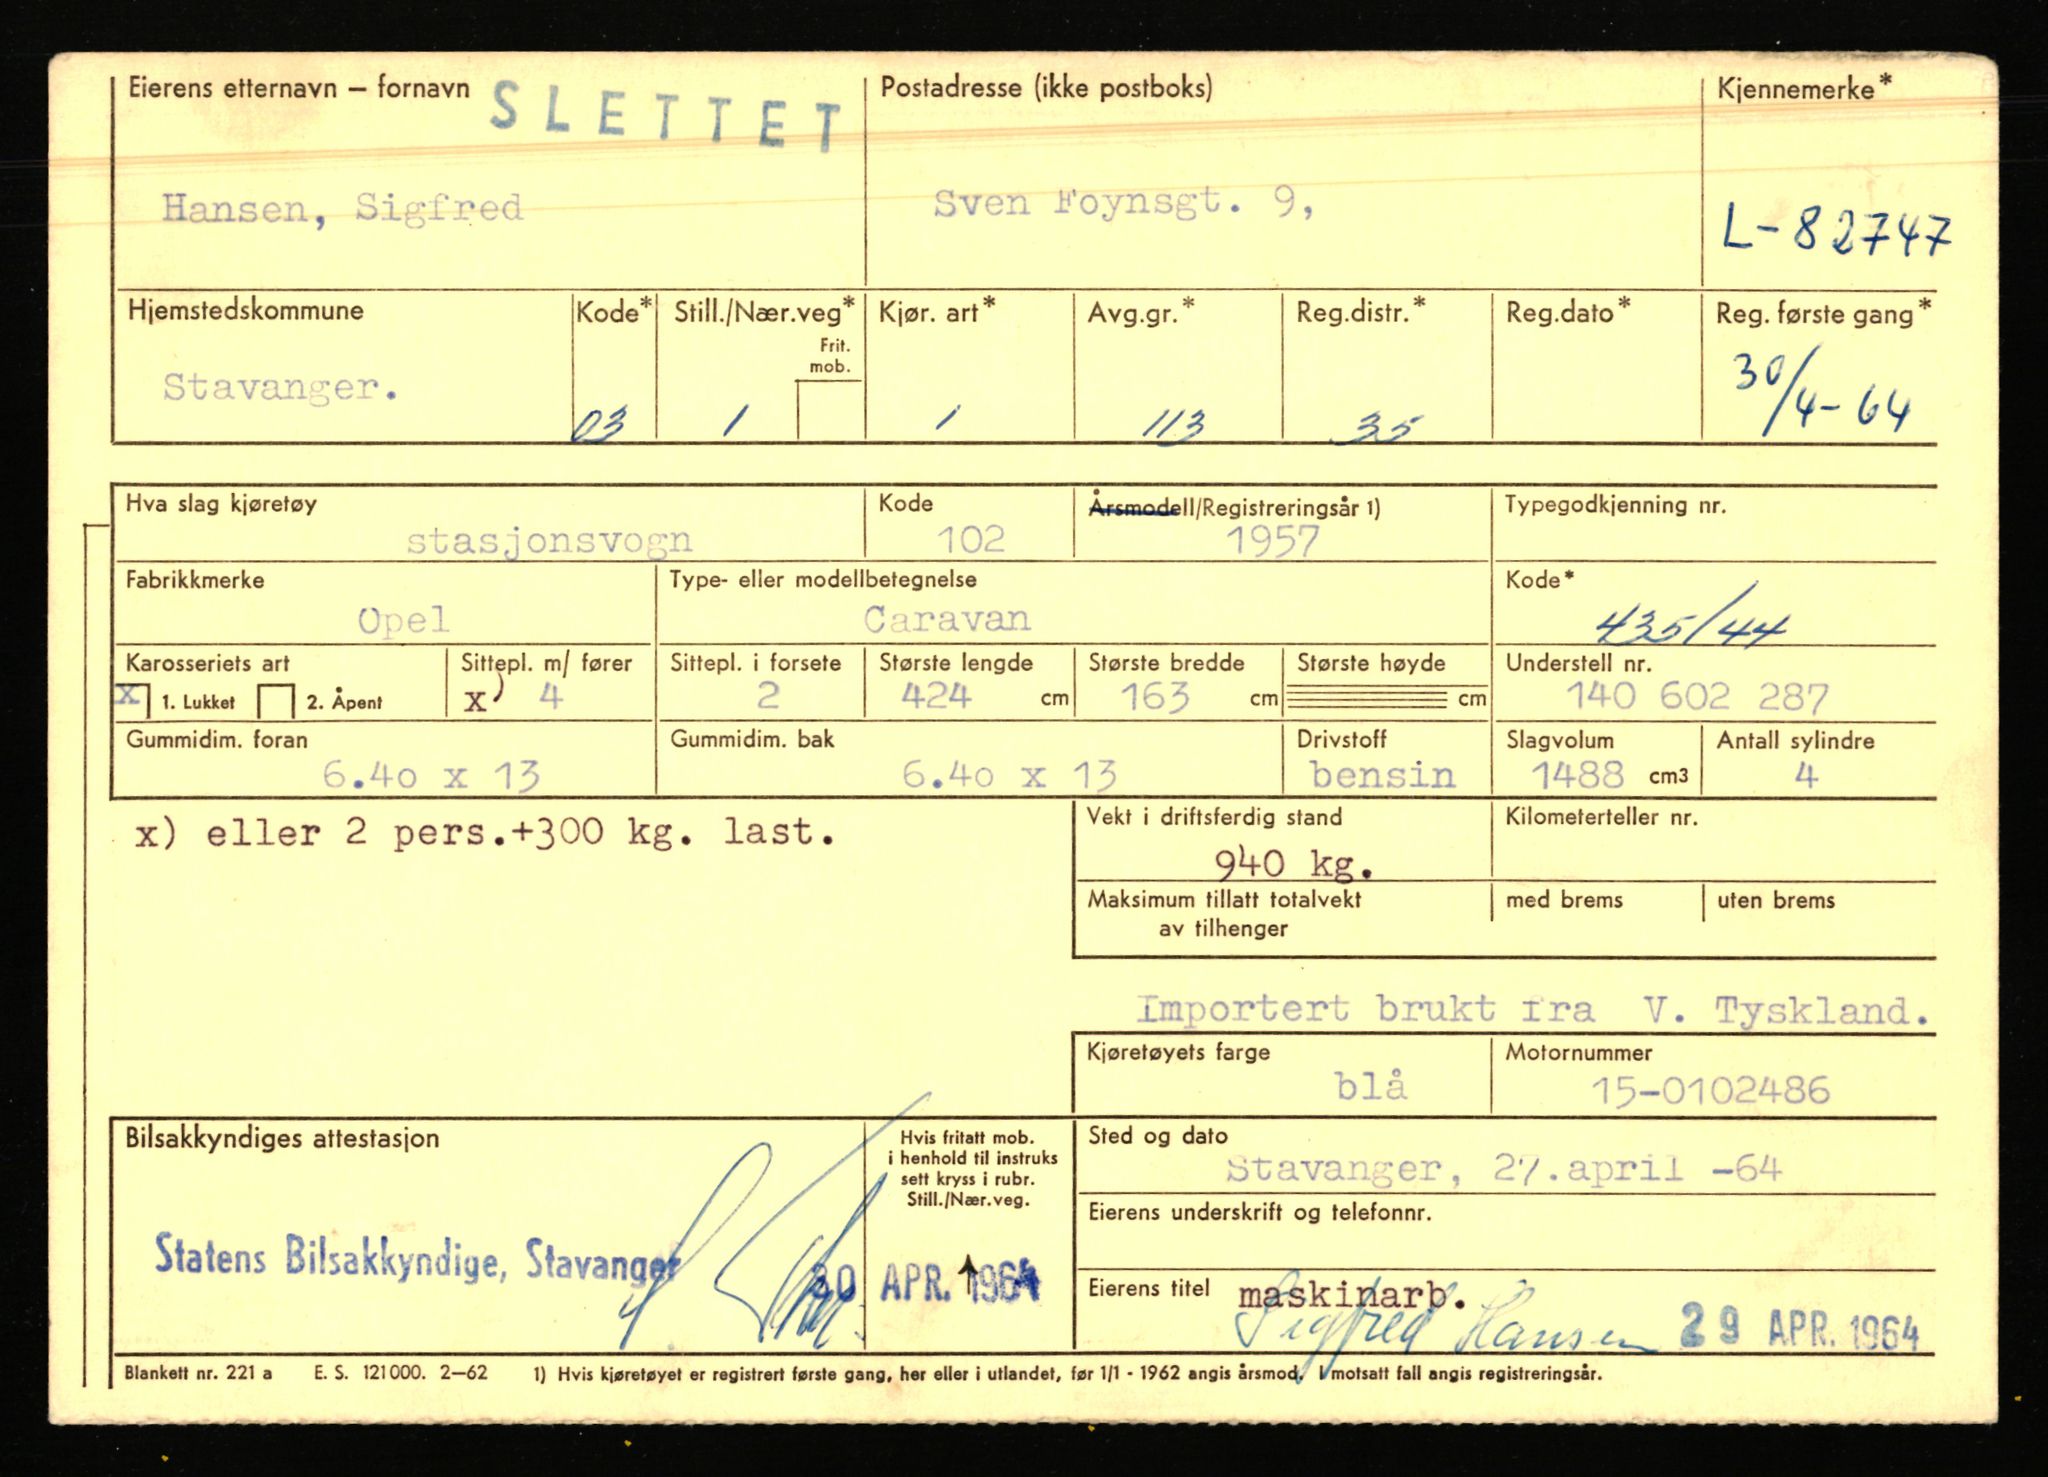 Eierens etternavn – fornavn
SLETTET
Postadresse (ikke postboks)
Kjennemerke*
Hansen, Sigfred
Sven Foynsgt. 9,
L-82747
Hjemstedskommune
Kode*
Still./Nær.veg*
Frit.
mob.
Kjør. art*
Avg.gr.*
Reg.distr.*
Reg.dato*
Reg. første gang*
Stavanger.
03
1
1
113
35
30/4-64
Hva slag kjøretøy
Kode
Årsmodell/Registreringsår 1)
Typegodkjenning nr.
stasjonsvogn
102
1957
Fabrikkmerke
Type- eller modellbetegnelse
Kode*
Opel
Caravan
435/44
Karosseriets art
Sittepl. m/ fører
Sittepl. i forsete
Største lengde
Største bredde
Største høyde
Understell nr.
x 1. Lukket 2. Åpent
x) 4
2
424 cm
163 cm
cm
140 602 287
Gummidim. foran
Gummidim. bak
Drivstoff
Slagvolum
Antall sylindre
6.40 x 13
6.40 x 13
bensin
1488 cm3
4
x) eller 2 pers.+300 kg. last.
Vekt i driftsferdig stand
Kilometerteller nr.
940 kg.
Maksimum tillatt totalvekt
av tilhenger
med brems
uten brems
Importert brukt fra V. Tyskland.
Kjøretøyets farge
Motornummer
blå
15-0102486
Bilsakkyndiges attestasjon
Hvis fritatt mob.
i henhold til instruks
sett kryss i rubr.
Still./Nær.veg.
Sted og dato
Stavanger, 27.april -64
Eierens underskrift og telefonnr.
Statens Bilsakkyndige, Stavanger
30 APR. 1964
Eierens titel maskinarb.
Sigfred Hansen
29 APR. 1964
Blankett nr. 221 a E. S. 121000. 2–62 1) Hvis kjøretøyet er registrert første gang, her eller i utlandet, før 1/1 - 1962 angis årsmod. I motsatt fall angis registreringsår.